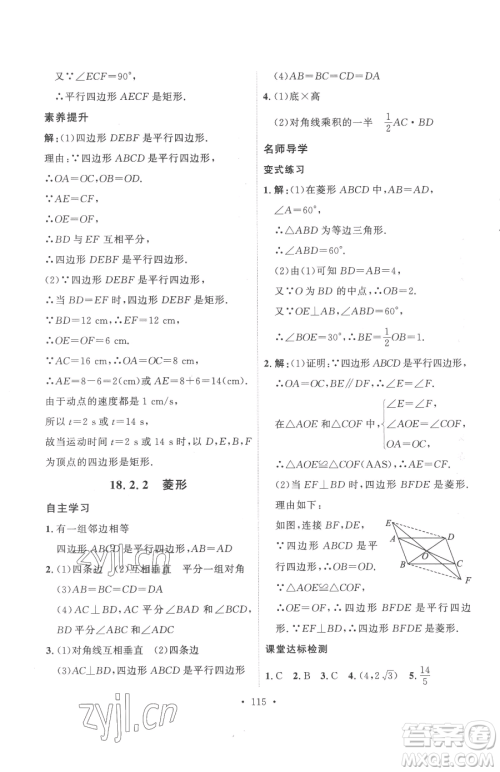 又∵∠ECF=90°,
∴平行四边形 AECF 是矩形.
素养提升
解:(1)四边形 DEBF 是平行四边形.
理由:∵四边形 ABCD 是平行四边形,
∴OA=OC,OB=OD.
∵AE=CF,
∴OE=OF.
∴BD 与 EF 互相平分.
∴四边形 DEBF 是平行四边形.
(2)∵四边形 DEBF 是平行四边形,
∴当 BD=EF 时,四边形 DEBF 是矩形.
∵BD=12 cm,∴EF=12 cm.
∴OE=OF=6 cm.
∵AC=16 cm,∴OA=OC=8 cm.
∴AE=8-6=2(cm)或 AE=8+6=14(cm).
由于动点的速度都是 1 cm/s,
所以 t=2 s 或 t=14 s.
故当运动时间 t=2 s 或 14 s 时,以 D,E,B,F
为顶点的四边形是矩形.
18.2.2 菱形
自主学习
1.有一组邻边相等
四边形 ABCD 是平行四边形,AB=AD
2.(1)四条边 (2)互相垂直 平分一组对角
(3)AB=BC=CD=AD
(4)AC⊥BD,AC 平分∠BAD 和∠BCD,BD
平分∠ABC 和∠ADC
3.(1)对角线互相垂直 (2)四条边
(3)AC⊥BD,四边形 ABCD 是平行四边形
(4)AB=BC=CD=DA
4.(1)底×高
(2)对角线乘积的一半 1/2 AC·BD
名师导学
变式练习
1.解:(1)在菱形 ABCD 中,AB=AD,
∠A=60°,
∴△ABD 为等边三角形.
∴∠ABD=60°.
(2)由(1)可知 BD=AB=4,
又∵O 为 BD 的中点,∴OB=2.
又∵OE⊥AB,∠ABD=60°,
∴∠BOE=30°,∴BE=1/2 OB=1.
2.解:(1)证明:∵四边形 ABCD 是平行四边形,
∴OA=OC,BE∥DF,∴∠E=∠F.
在△AOE 和△COF 中, { ∠E=∠F, ∠AOE=∠COF, OA=OC,
∴△AOE≌△COF(AAS).
(2)当 EF⊥BD 时,四边形 BFDE 是菱形.
理由如下:
如图,连接 BF,DE.
∵四边形 ABCD 是
平行四边形,
∴OB=OD.
∵△AOE≌△COF,
∴OE=OF.∴四边形 BFDE 是平行四边形.
又∵EF⊥BD,∴四边形 BFDE 是菱形.
E
A
D
O
B
C
F
课堂达标检测
1.C 2.C 3.C 4.(4,2√3) 5. 14/5
· 115 ·
zyjl.cn
zyjl.cn
答案圈
MXQE.COM